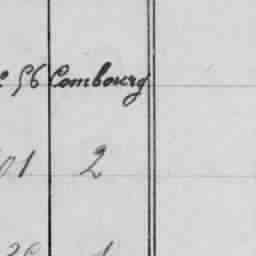 56 Combourg
01 2